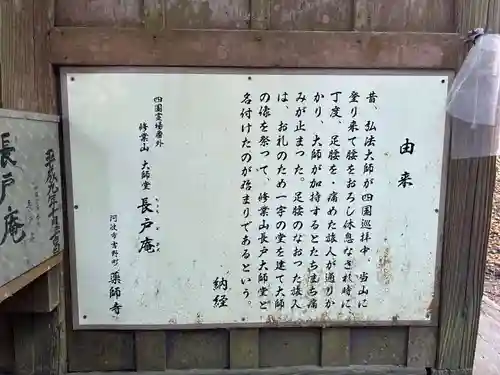 由来
昔、弘法大師が四国巡拝中、当山に
登り来て腰をおろし休息なされ時に
丁度、足腰を・痛めた旅人が通りか
かり、大師が加持するとたちまち痛
みが止まった。足腰のなおった旅人
は、お礼のため一宇の堂を建て大師
の像を祭って、修業山長戸大師堂と
名付けたのが始まりであるという。
納経
四国霊場番外
修業山 大師堂 長戸庵
ちょうどあん
阿波市吉野町 薬師寺
長戸庵
平成九年十